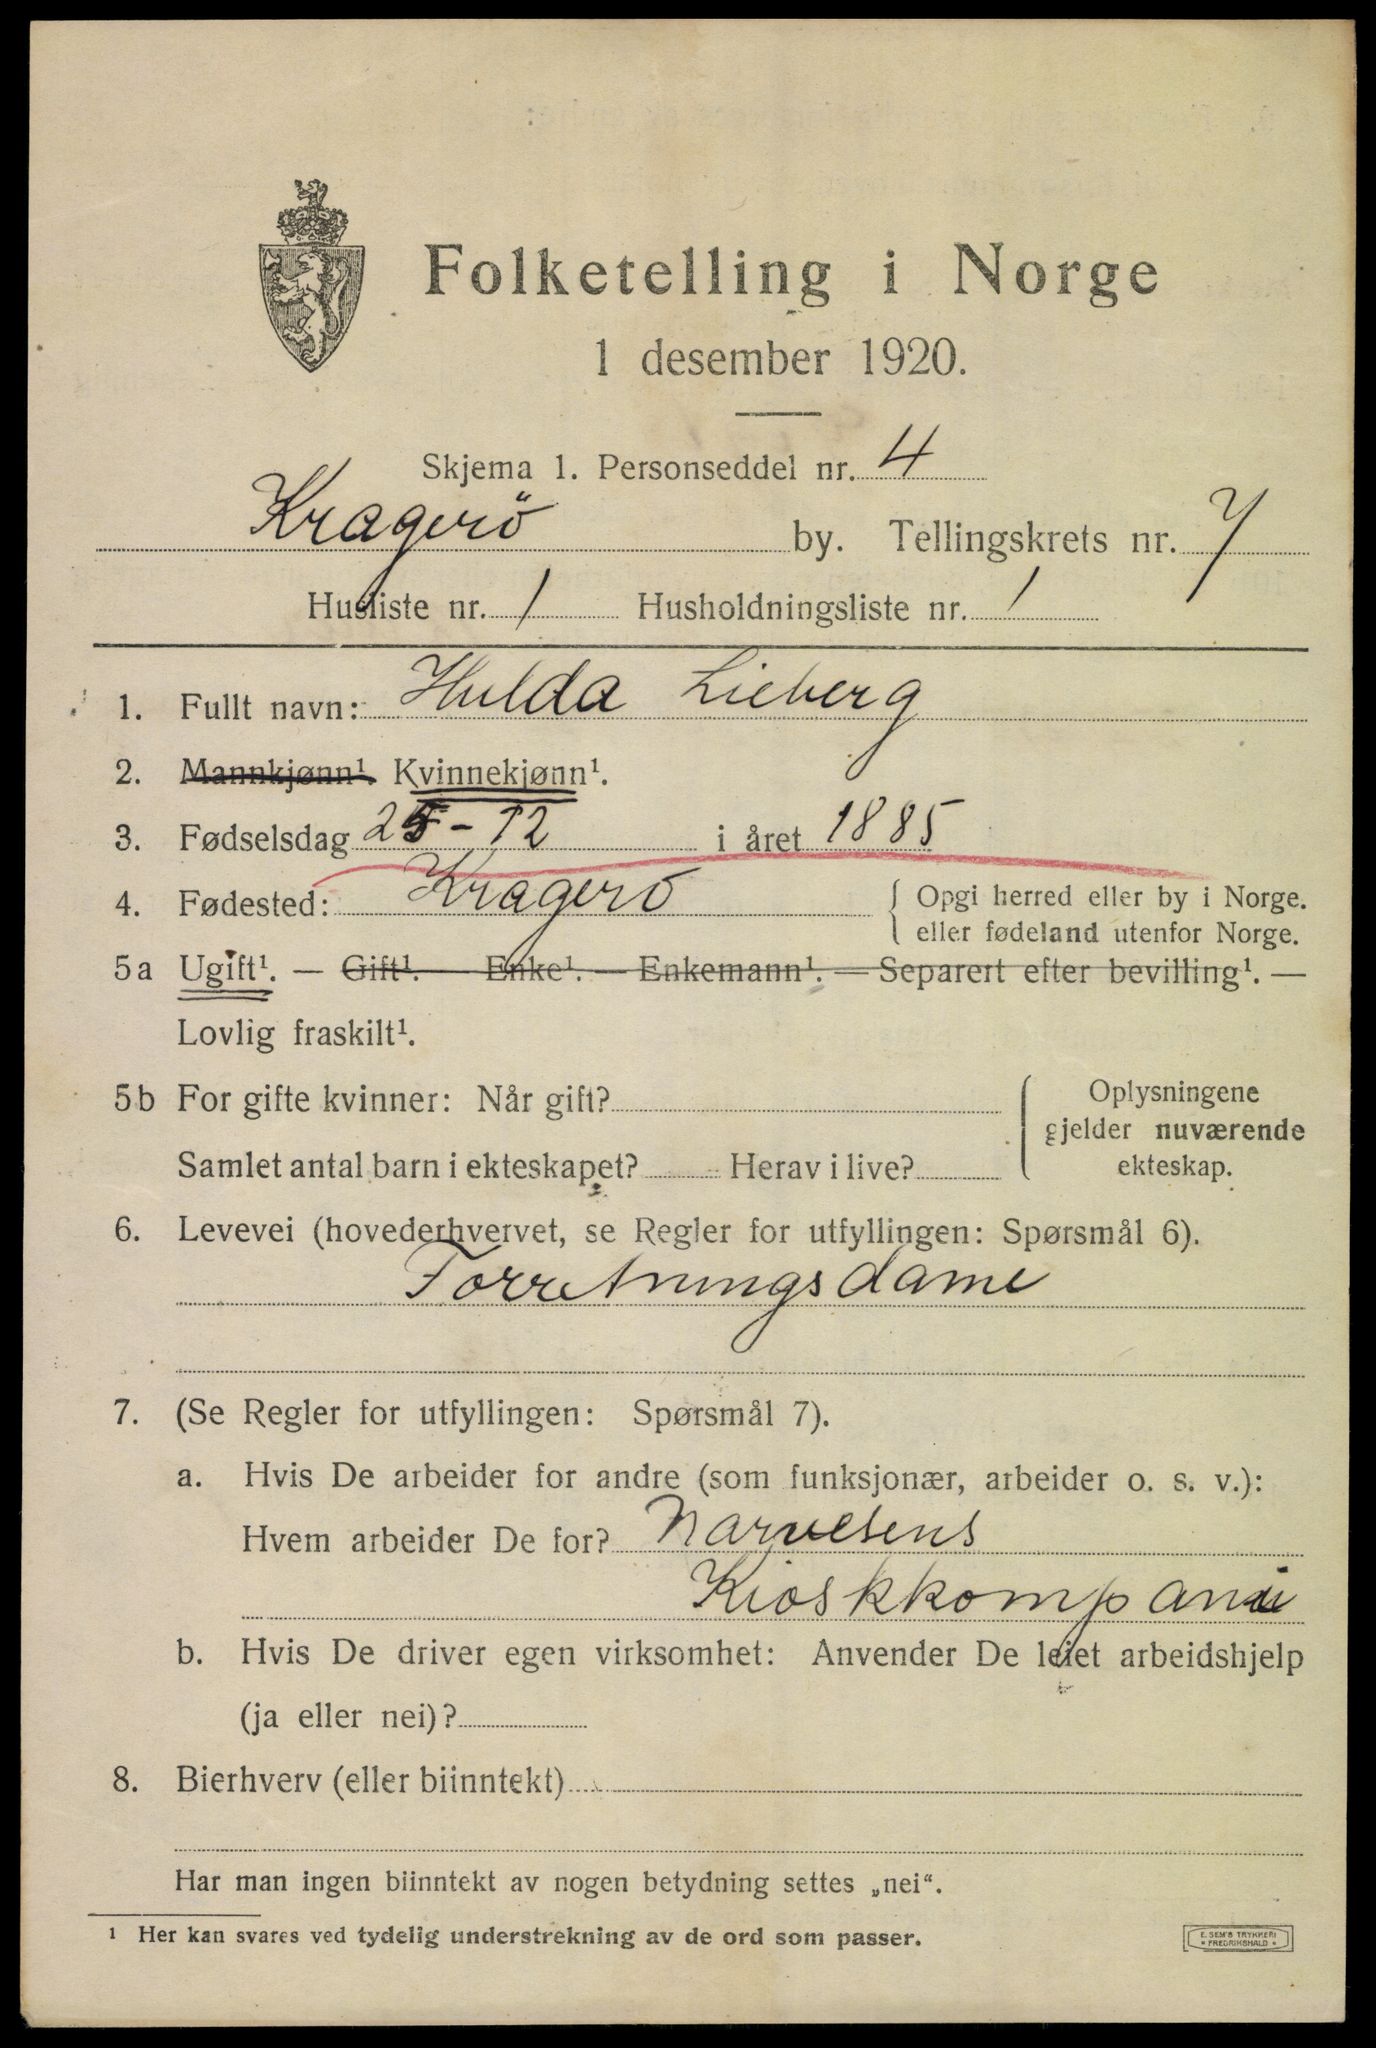 Folketelling i Norge
1 desember 1920.
Skjema 1. Personseddel nr. 4
Kragerö by. Tellingskrets nr. 7
Husliste nr. 1 Husholdningsliste nr. 1
1. Fullt navn: Hulda Lieberg
2. Mannkjønn¹. Kvinnekjønn¹.
3. Fødselsdag 25-12 i året 1885
4. Fødested: Kragerö { Opgi herred eller by i Norge.
eller fødeland utenfor Norge.
5a Ugift¹. — Gift¹. — Enke¹. — Enkemann¹. — Separert efter bevilling¹. —
Lovlig fraskilt¹.
5b For gifte kvinner: Når gift? Oplysningene
gjelder nuværende
Samlet antal barn i ekteskapet? Herav i live? ekteskap.
6. Levevei (hovederhvervet, se Regler for utfyllingen: Spørsmål 6).
Forretningsdame
7. (Se Regler for utfyllingen: Spørsmål 7).
a. Hvis De arbeider for andre (som funksjonær, arbeider o. s. v.):
Hvem arbeider De for? Narvesens
Kioskkompani
b. Hvis De driver egen virksomhet: Anvender De leiet arbeidshjelp
(ja eller nei)?
8. Bierhverv (eller biinntekt)
Har man ingen biinntekt av nogen betydning settes „nei“.
¹ Her kan svares ved tydelig understrekning av de ord som passer.
E. SEM'S TRYKKERI
• FREDRIKSHALD •